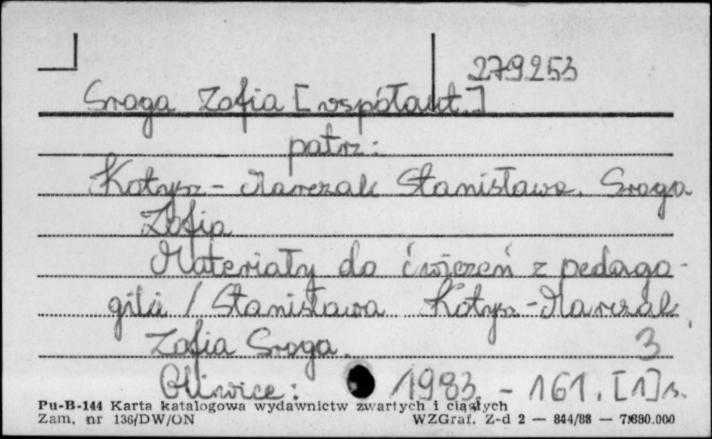 279253
Sroga Zofia [współaut.]
patrz:
Kotysz-Marczak Stanisława, Sroga
Zofia
Materiały do ćwiczeń z pedago-
giki / Stanisława Kotysz-Marczak,
Zofia Sroga.
3
Gliwice: 1983. - 161, [1] s.
Pu-B-144 Karta katalogowa wydawnictw zwartych i ciągłych
Zam. nr 136/DW/ON WZGraf. Z-d 2 — 844/88 — 7.680.000